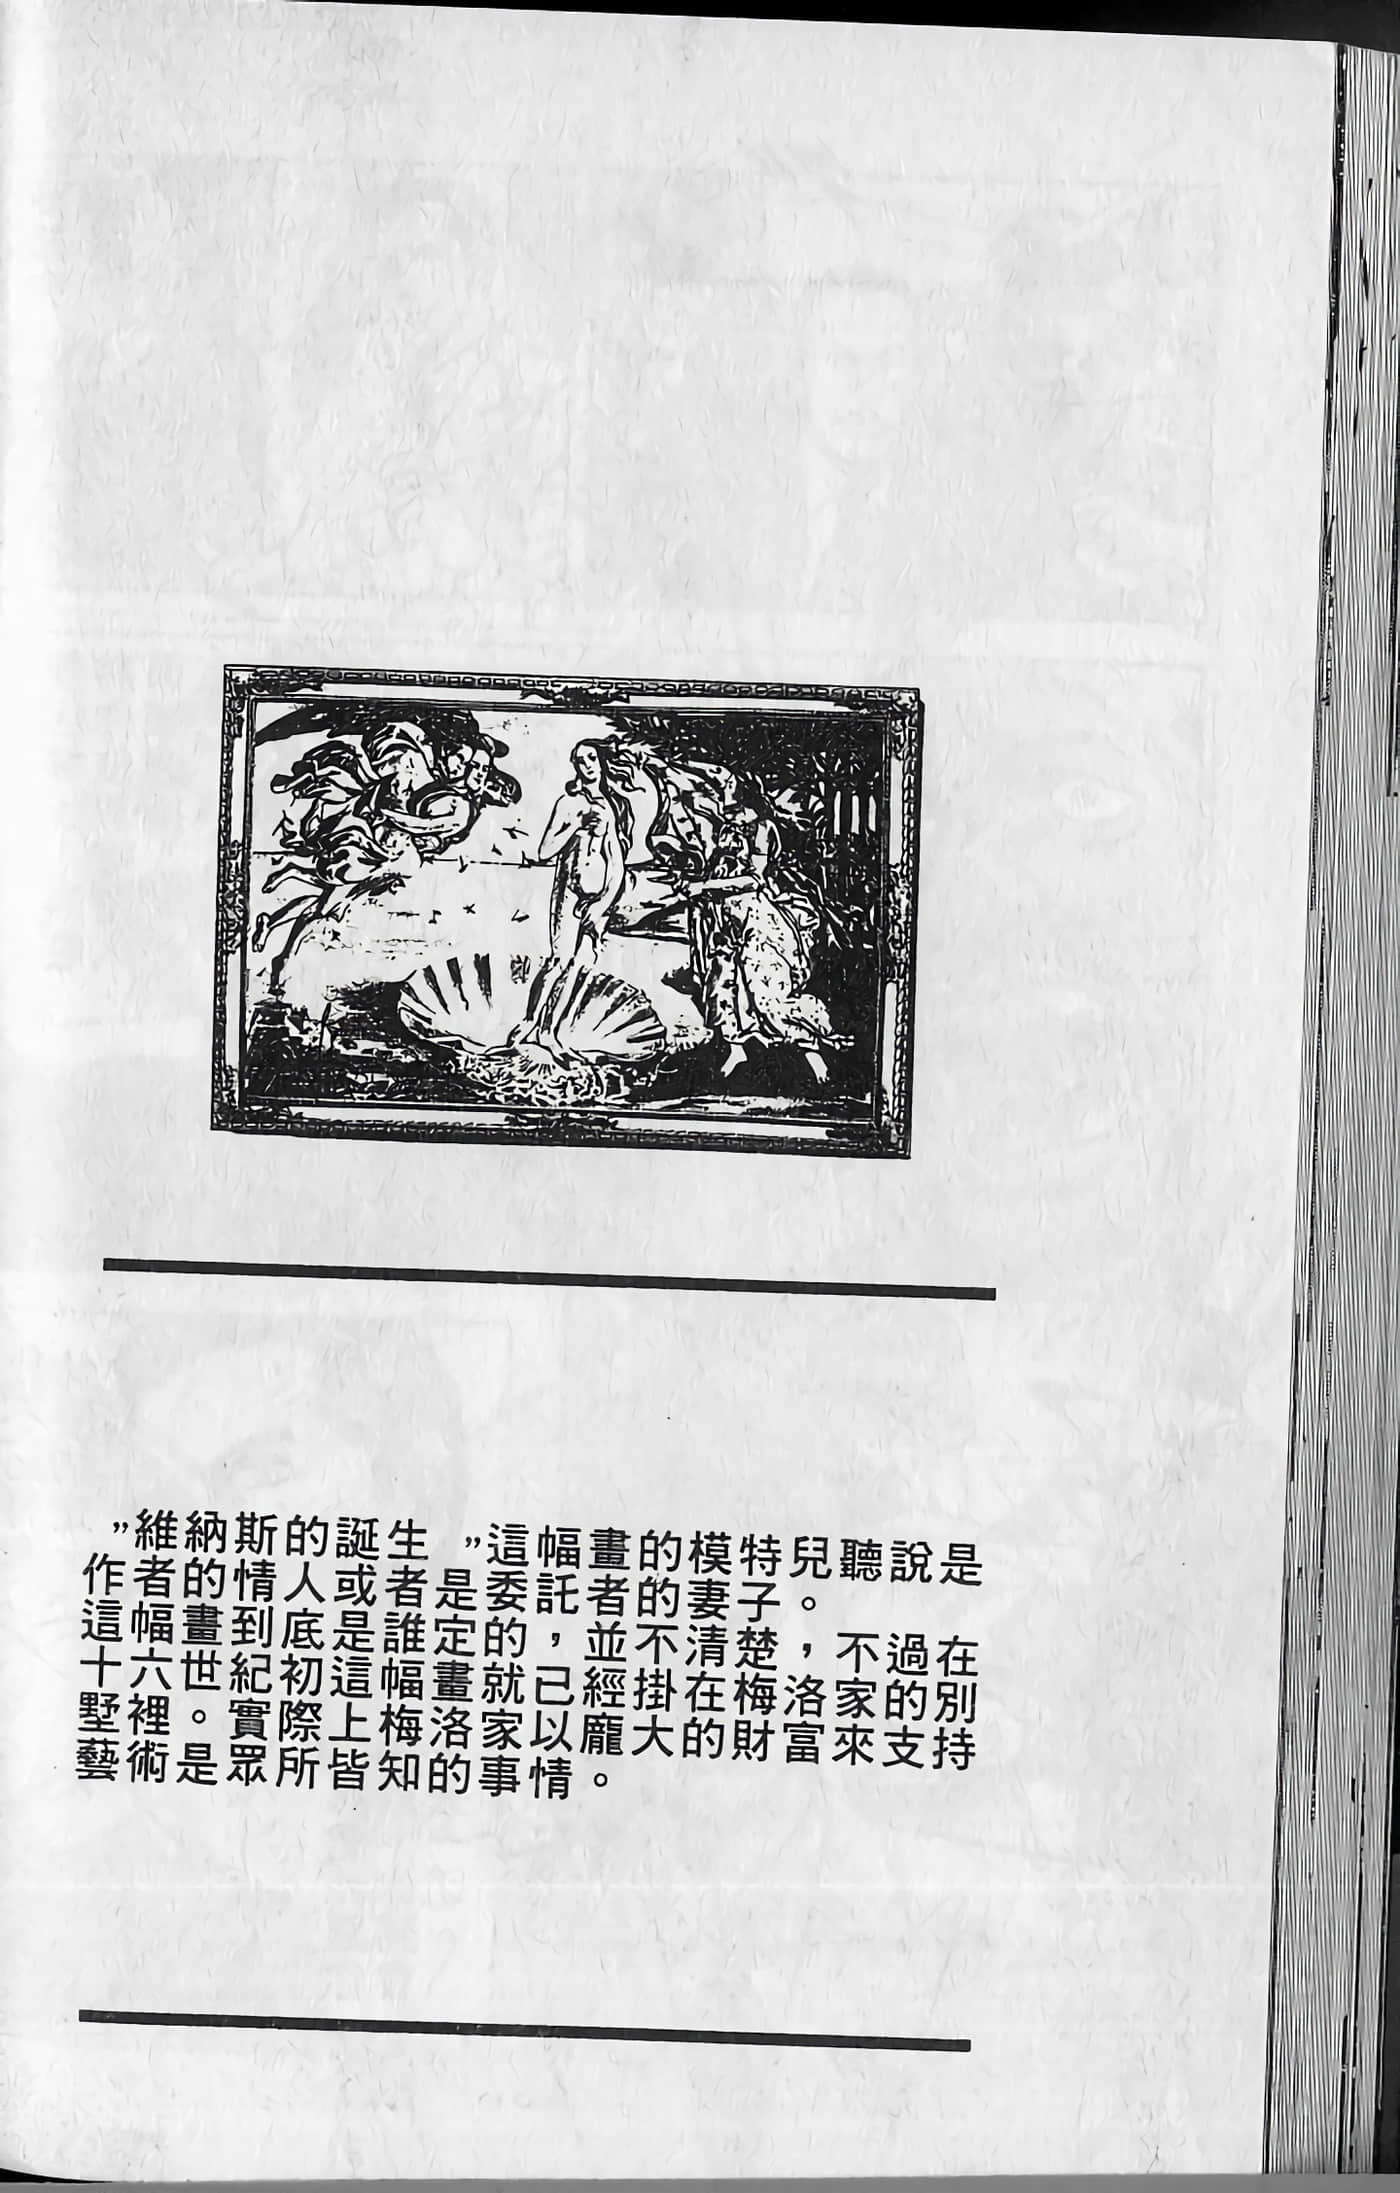 ”維納斯的誕生 ”這幅畫的模特兒聽說是
作者的情人或者是委託者的妻子。
這幅畫到底是誰定的，並不清楚，不過在
十六世紀初這幅畫就已經掛在梅洛家的別
墅裡。實際上梅洛家以龐大的財富來支持
藝術是眾所皆知的事情。